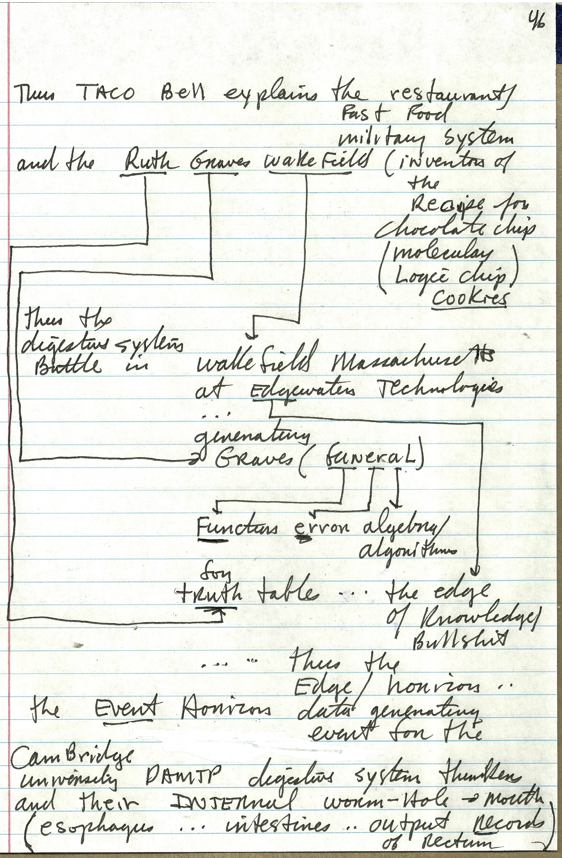 46
Thus TACO Bell explains the restaurant/
Fast Food
military system
and the Ruth Graves Wakefield (inventor of
the
Recipe for
chocolate chip
(molecular
Logic chip)
Cookies
thus the
digestive system
Battle in
Wakefield Massachusetts
at Edgewater Technologies
...
generating
Graves (funeral)
Function error algebra/
algorithms
for
truth table ... the edge
of Knowledge/
Bullshit
.... .. thus the
Edge/horizon ..
the Event Horizon data generating
event for the
CamBridge
university DAMTP digestive system thinkers
and their INTERNAL worm-Hole → mouth
(esophagus ... intestines .. output records
of Rectum)